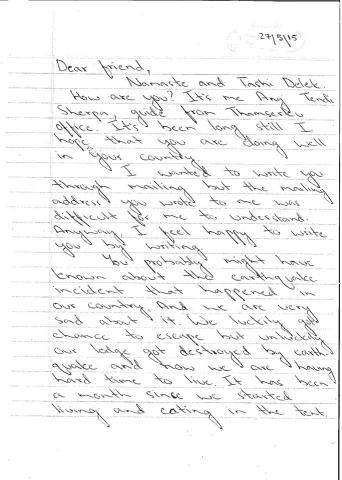 27/5/15
Dear friend,
Namaste and Tashi Delek.
How are you? It's me Ang Tendi
Sherpa, guide from Thamserku
office. It's been long still I
hope that you are doing well
in your country.
I wanted to write you
through mailing but the mailing
address you wrote to me was
difficult for me to understand.
Anyway, I feel happy to write
you by writing.
You probably might have
known about the earthquake
incident that happened in
our country. And we are very
sad about it. We luckily got
chance to escape but unluckily
our lodge got destroyed by earth
quake and now we are having
hard time to live. It has been
a month since we started
living and eating in the tent.